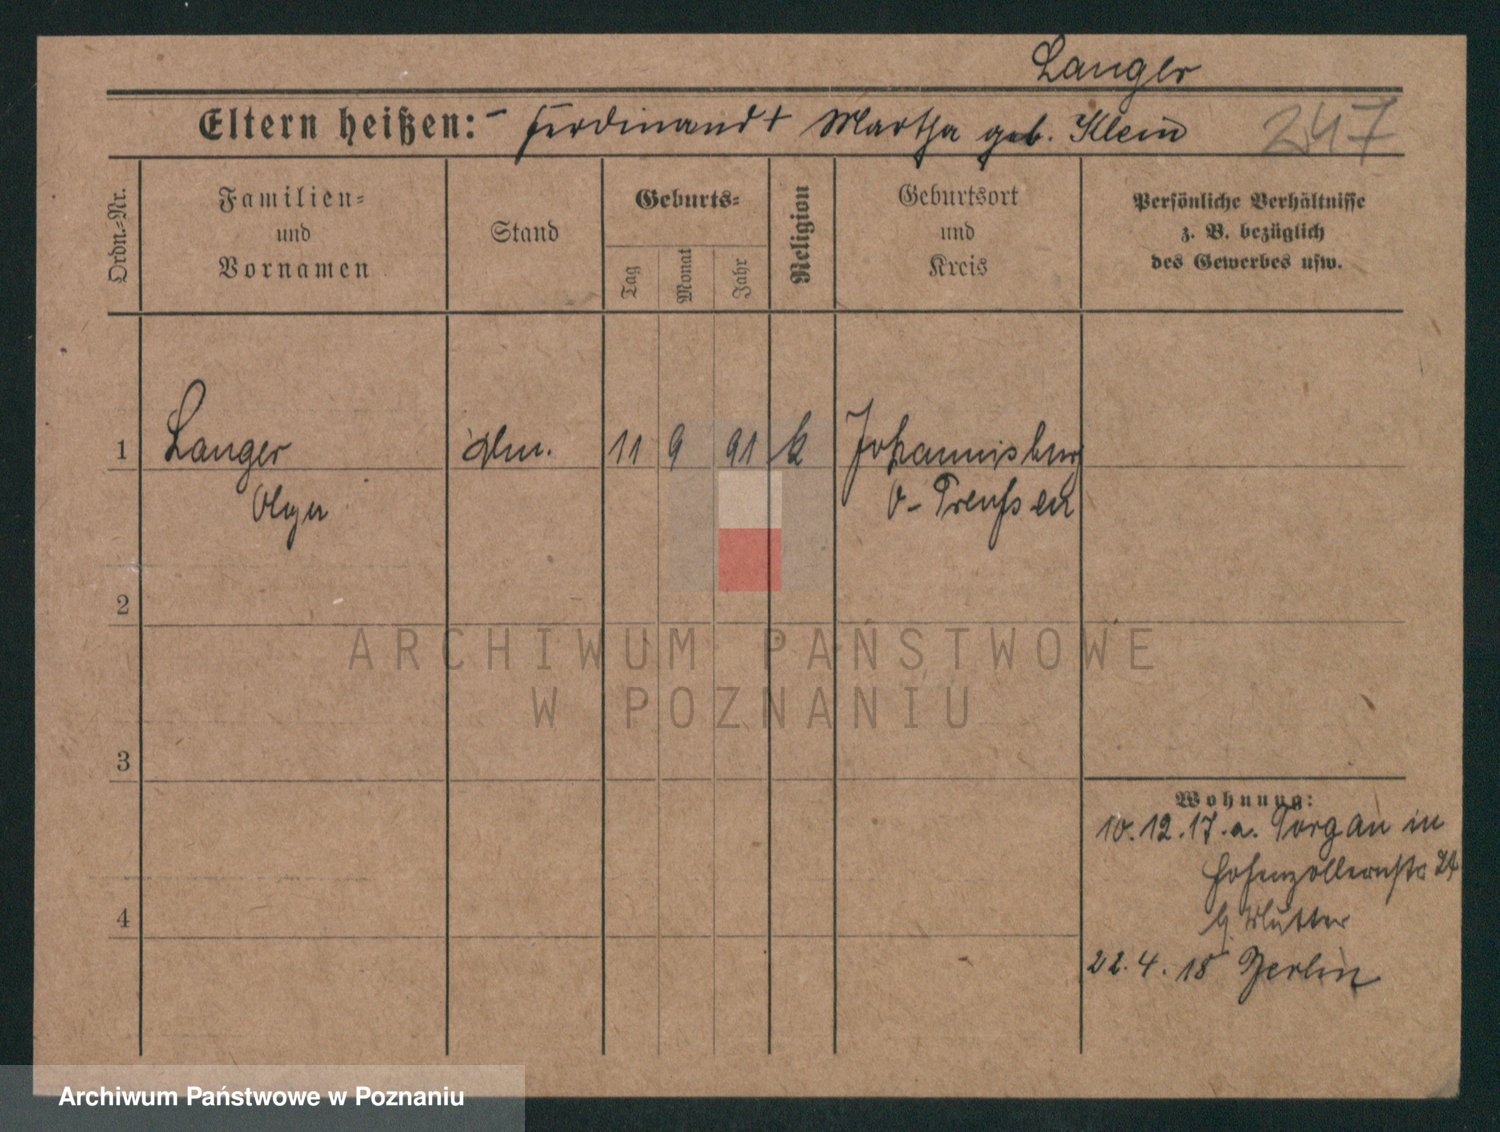 Langer
Eltern heißen: - Ferdinand + Martha geb. Klein 247
Ordn.-Nr.
Familien-
und
Vornamen
Stand
Geburts-
Tag
Monat
Jahr
Religion
Geburtsort
und
Kreis
Persönliche Verhältnisse
z. B. bezüglich
des Gewerbes usw.
1 Langer 11 9 91 k Johannisburg
Olga O-Preußen
2
ARCHIWUM PAŃSTWOWE
W POZNANIU
3
Wohnung:
10.12.17. a. Torgau in
Hohenzollernstr 24
b Mutter
4
22.4.18 Berlin
Archiwum Państwowe w Poznaniu